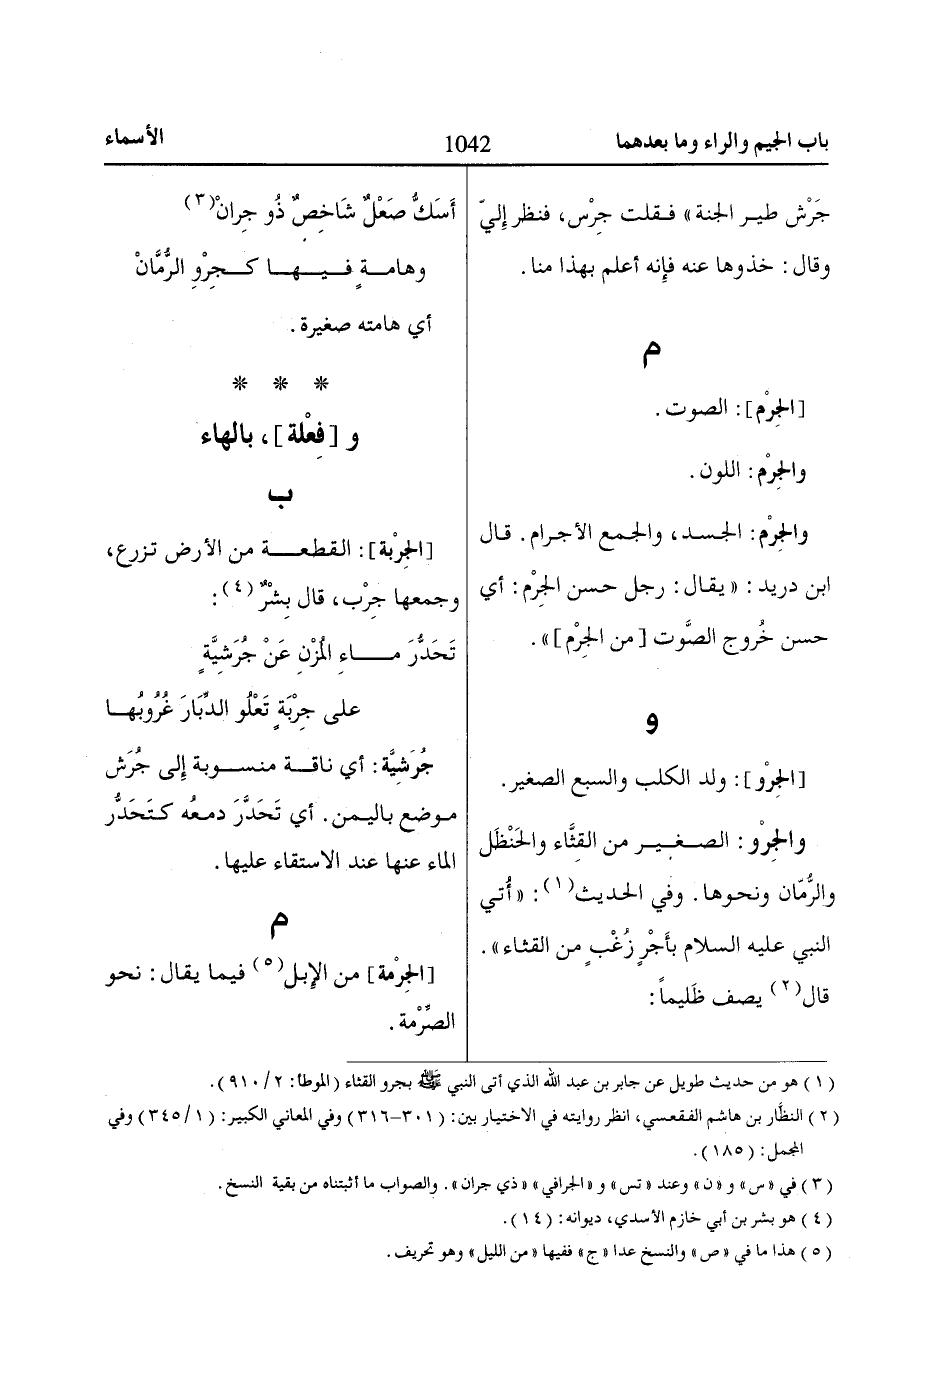 باب الجيم والراء وما بعدهما
1042
الأسماء
جَرْش طير الجنة» فقلت جِرْس، فنظر إليّ
وقال: خذوها عنه فإنه أعلم بهذا منا.
م
[الجِرْم]: الصوت.
والجِرْم: اللون.
والجِرْم: الجسد، والجمع الأجرام. قال
ابن دريد: «يقال: رجل حسن الجِرْم: أي
حسن خُروج الصَّوت [من الجِرْم]».
و
[الجِرْو]: ولد الكلب والسبع الصغير.
والجِرْو: الصغير من القثَّاء والحَنْظَل
والرُّمّان ونحوها. وفي الحديث(١): «أُتي
النبي عليه السلام بأَجْرٍ زُغْبٍ من القثاء».
قال(٢) يصف ظَليماً:
أَسَكُّ صَعْلٌ شَاخِصٌ ذُو جِرانْ(٣)
وهامةٍ فيها كجِرْوِ الرُّمَّانْ
أي هامته صغيرة.
* * *
و [فِعْلة]، بالهاء
ب
[الجِرْبة]: القطعة من الأرض تزرع،
وجمعها جِرْب، قال بِشْرٌ(٤):
تَحَدُّرَ ماءِ المُزْنِ عَنْ جُرَشيَّةٍ
على جِرْبَةٍ تَعْلُو الدِّبَارَ غُرُوبُها
جُرَشيَّة: أي ناقة منسوبة إلى جُرَش
موضع باليمن. أي تَحَدَّرَ دمعُه كتَحَدُّر
الماء عنها عند الاستقاء عليها.
م
[الجِرْمة] من الإبل(٥) فيما يقال: نحو
الصِّرْمة.
(١) هو من حديث طويل عن جابر بن عبد الله الذي أتى النبي ﷺ بجرو القثاء (الموطأ: ٩١٠/٢).
(٢) النظَّار بن هاشم الفقعسي، انظر روايته في الاختيار بين: (٣٠١–٣١٦) وفي المعاني الكبير: (٣٤٥/١) وفي
المجمل: (١٨٥).
(٣) في «س» و «ن» وعند «تس» و «الجرافي» «ذي جران». والصواب ما أثبتناه من بقية النسخ.
(٤) هو بشر بن أبي خازم الأسدي، ديوانه: (١٤).
(٥) هذا ما في «ص» والنسخ عدا «ج» ففيها «من الليل» وهو تحريف.